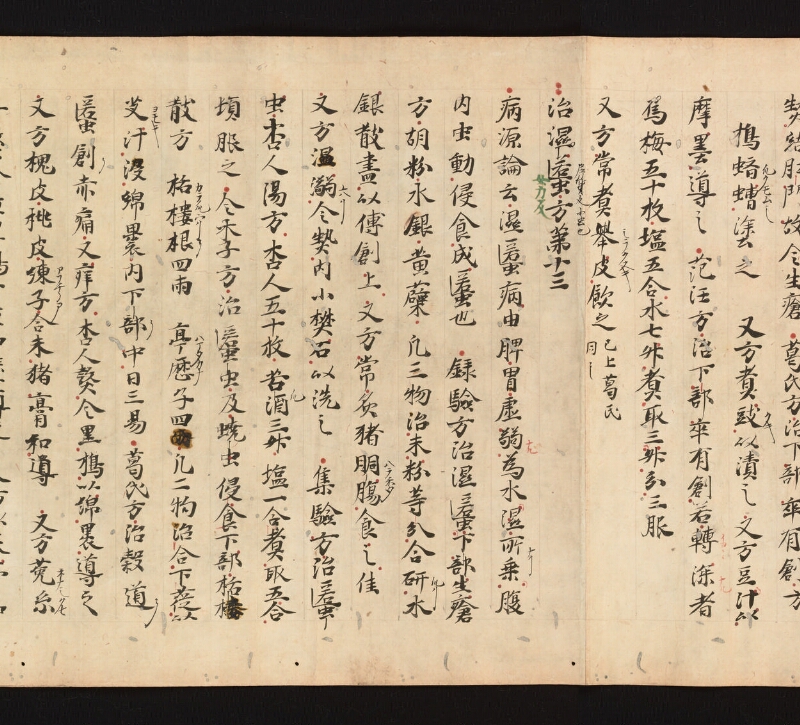 契結肛門故令生瘡 葛氏方治下部卒有創方
搗蠐螬塗之 又方煮豉以漬之 又方豆汁以
摩墨導之 范汪方治下部卒有創若轉深者
烏梅五十枚塩五合水七升煮取三升分三服
又方常煮舉皮飲之 已上葛氏同之
治濕䘌方第十三
病源論云濕䘌病由脾胃虛弱為水濕所乗腹
内虫動侵食成䘌也 録驗方治濕䘌下部生瘡
方 胡粉 水銀 黄蘗 凡三物治末粉等分合研水
銀散盡以傅創上 又方常炙猪胴膓食之佳
又方温溺令熱内小礬石以洗之 集驗方治䘌
虫杏人湯方 杏人五十枚 苦酒三升 塩一合煮取五合
頓服之 令禾子方治䘌虫及蟯虫侵食下部栝樓
散方 栝樓根四兩 亭歴子四兩 凡二物治合下簁以
艾汁浸綿裹内下部中日三易 葛氏方治穀道
䘌創赤痛又痒方杏人熬令黒搗以綿裹導之
又方槐皮桃皮㯶子合末猪膏和導 又方菟糸